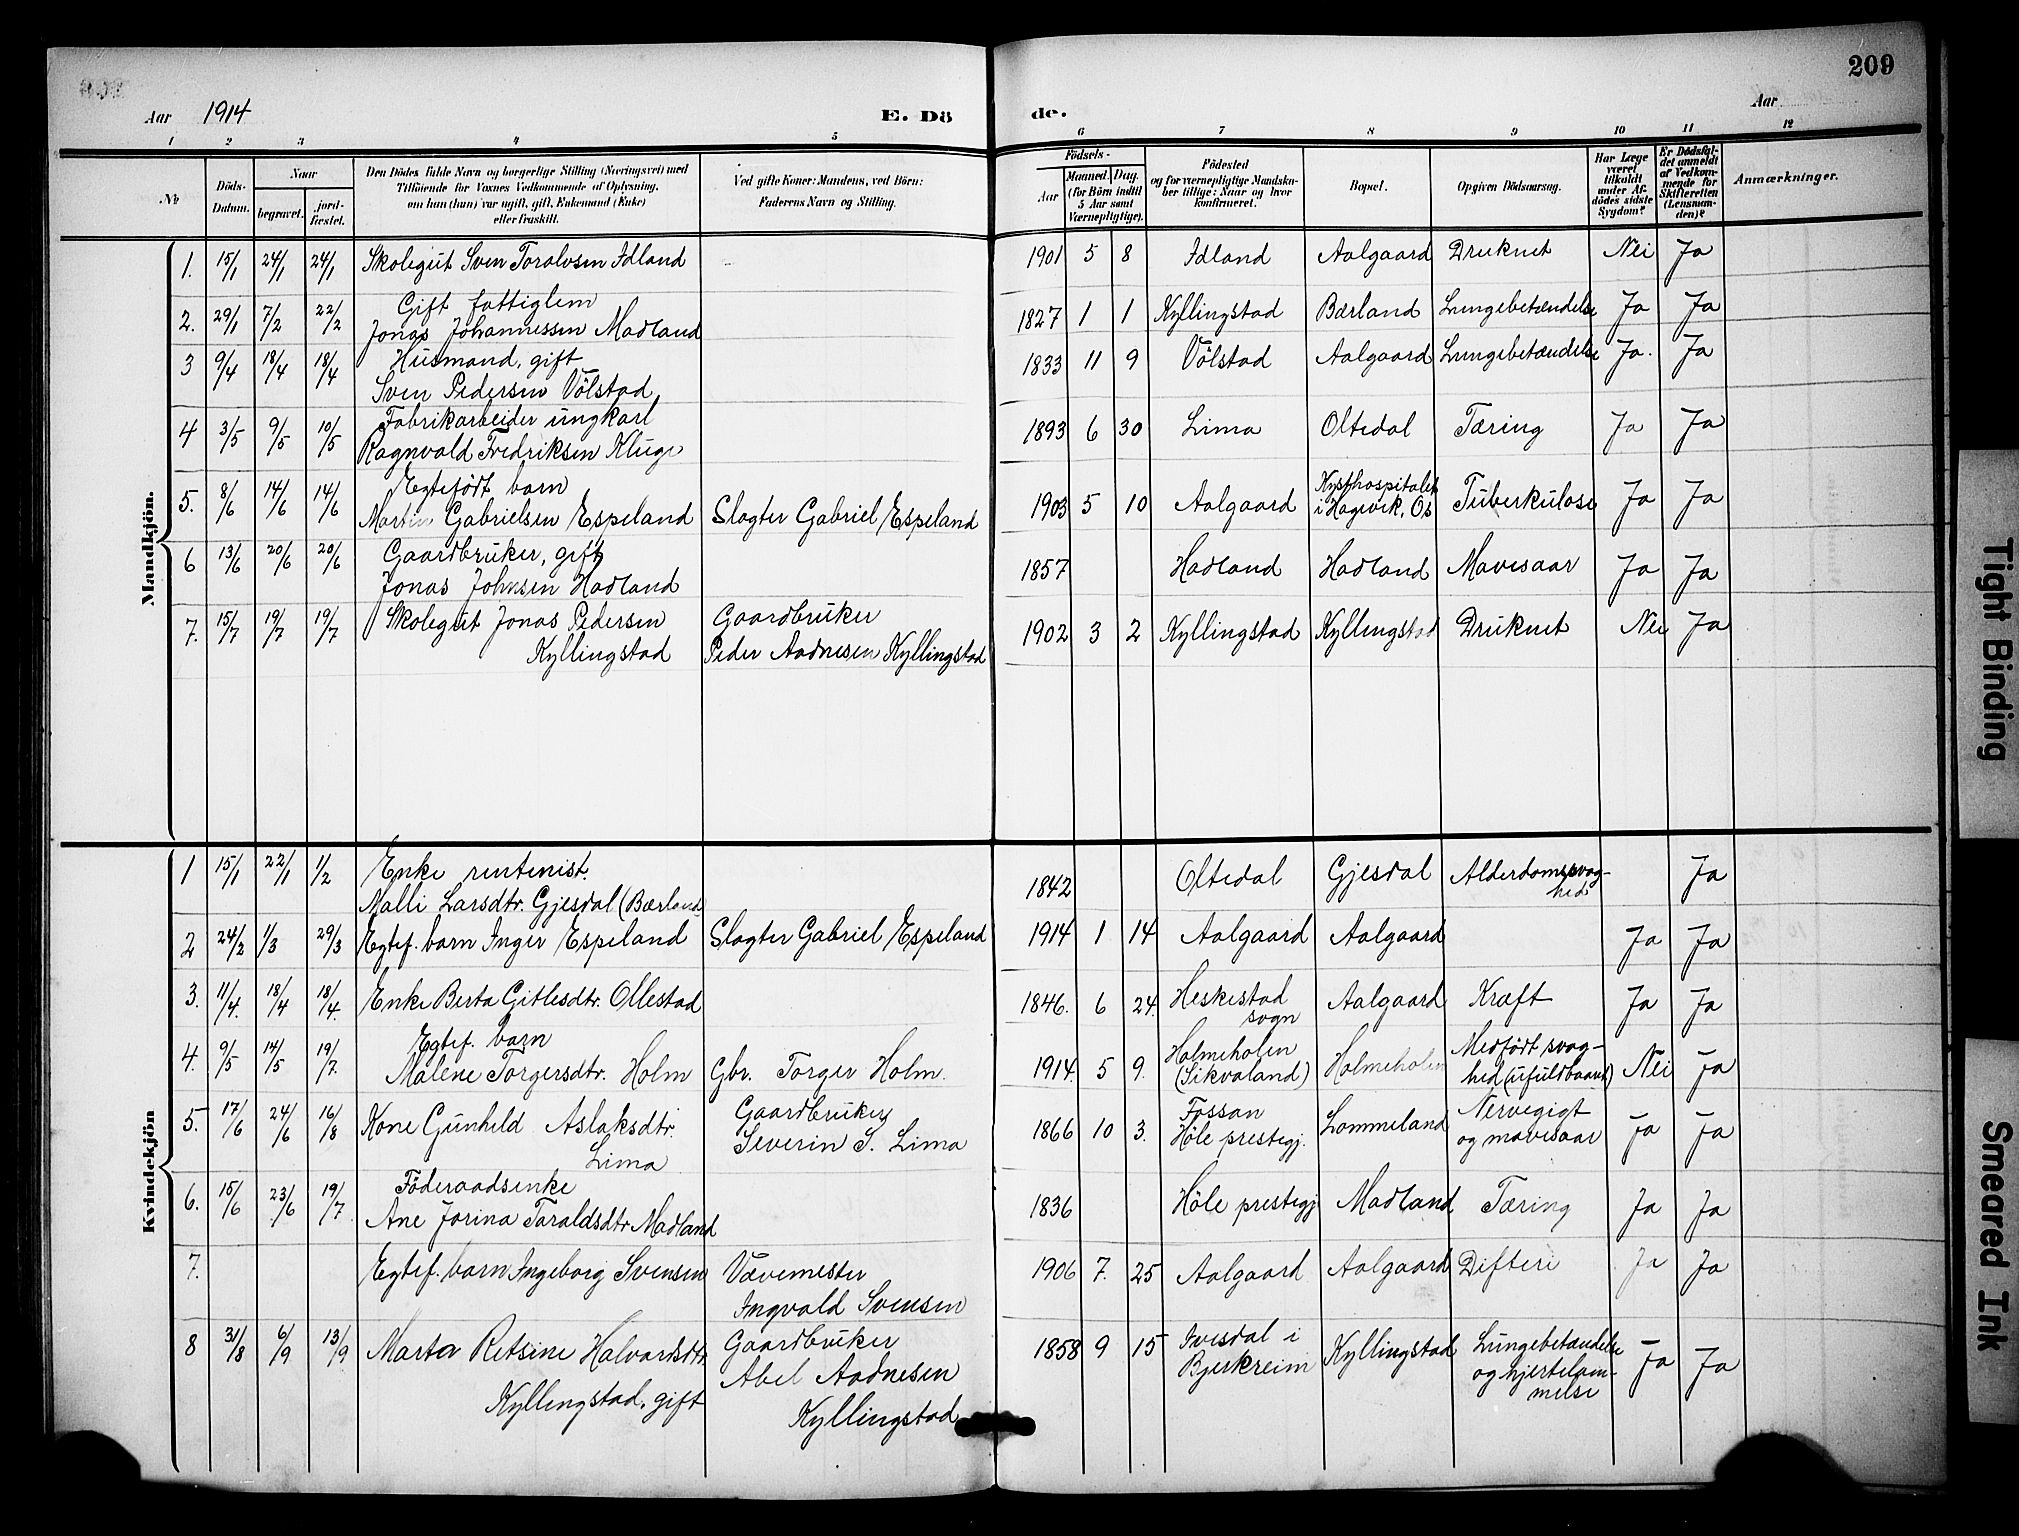 209
Aar 1914 E. Dö de. Aar
1 2 3 4 5 6 7 8 9 10 11 12
No
Döds-
Datum.
Naar
begravet.
jord-
fæstet.
Den Dödes fulde Navn og borgerlige Stilling (Næringsvei) med
Tilföiende for Voxnes Vedkommende af Oplysning,
om han (hun) var ugift, gift, Enkemand (Enke)
eller fraskilt.
Ved gifte Koner: Mandens, ved Börn:
Faderens Navn og Stilling.
Födsels-
Aar
Maaned. Dag.
(for Börn indtil
5 Aar samt
Værnepligtige).
Födested
og for værnepligtige Mandska-
ber tillige: Naar og hvor
konfirmeret.
Bopæl.
Opgiven Dödsaarsag.
Har Læge
været
tilkaldt
under Af-
dödes sidste
Sygdom?
Er Dödsfal-
det anmeldt
af Vedkom-
mende for
Skifteretten
(Lensman-
den)?
Anmærkninger.
Mandkjön.
1. 15/1 24/1 24/1 Skolegut Sven Toralvsen Idland 1901 5 8 Idland Aalgaard Druknet Nei Ja
Gift fattiglem
2. 29/1 7/2 22/2 Jonas Johannessen Madland 1827 1 1 Kyllingstad Bærland Lungebetændelse Ja Ja
Husmand, gift
3 9/4 18/4 18/4 Sven Pedersen Völstad 1833 11 9 Völstad Aalgaard Lungebetændelse Ja. Ja
Fabrikarbeider ungkarl
4 3/5 9/5 10/5 Ragnvald Fredriksen Kluge 1893 6 30 Lima Oltedal Tæring Ja Ja
Egtefödt barn
5. 8/6 14/6 14/6 Martin Gabrielsen Espeland Slagter Gabriel Espeland 1903 5 10 Aalgaard Kysthospitalet
i Hagevik, Os Tuberkulose Ja Ja
Gaardbruker, gift
6 13/6 20/6 20/6 Jonas Johnsen Hadland 1857 Hadland Hadland Mavesaar Ja Ja
7. 15/7 19/7 19/7 Skolegut Jonas Pedersen
Kyllingstad
Gaardbruker
Peder Aadnesen Kyllingstad 1902 3 2 Kyllingstad Kyllingstad Druknet Nei Ja
Kvindekjön
1 15/1 22/1 1/2 Enke rentenist.
Malli Larsdtr. Gjesdal (Bærland 1842 Oltedal Gjesdal Alderdomssvag-
hed Ja
2 24/2 1/3 29/3 Egtef. barn Inger Espeland Slagter Gabriel Espeland 1914 1 14 Aalgaard Aalgaard Ja Ja
3. 11/4. 18/4 18/4. Enke Berta Gitlesdtr. Ollestad 1846. 6 24. Heskestad
sogn Aalgaard Kræft Ja Ja
Egtef. barn
4. 9/5 14/5 19/7. Malene Torgersdtr. Holm Gbr. Torger Holm. 1914. 5 9. Holmeholen
(Sikvaland) Holmeholen Medfödt svag-
hed (ufuldbaaret) Nei Ja
5. 17/6 24/6 16/8 Kone Gunhild Aslaksdtr.
Lima
Gaardbruker
Severin S. Lima 1866 10 3. Fossan
Höle prestegj. Lommeland Nervegigt
og mavesaar Ja Ja
Föderaadsenke
6. 15/6 23/6 19/7 Ane Jorina Taraldsdtr Madland 1836 Höle prestegj Madland Tæring Ja Ja
7. Egtef. barn Ingeborg Svensen Vævemester
Ingvald Svensen 1906 7. 25 Aalgaard Aalgaard Difteri Ja Ja
8 31/8 6/9 13/9 Marta Retsine Halvardsdtr.
Kyllingstad, gift
Gaardbruker
Abel Aadnesen
Kyllingstad 1858 9 15 Ivesdal i
Bjerkreim Kyllingstad Lungebetændelse
og hjertelam-
melse Ja Ja
Tight Binding
Smeared Ink